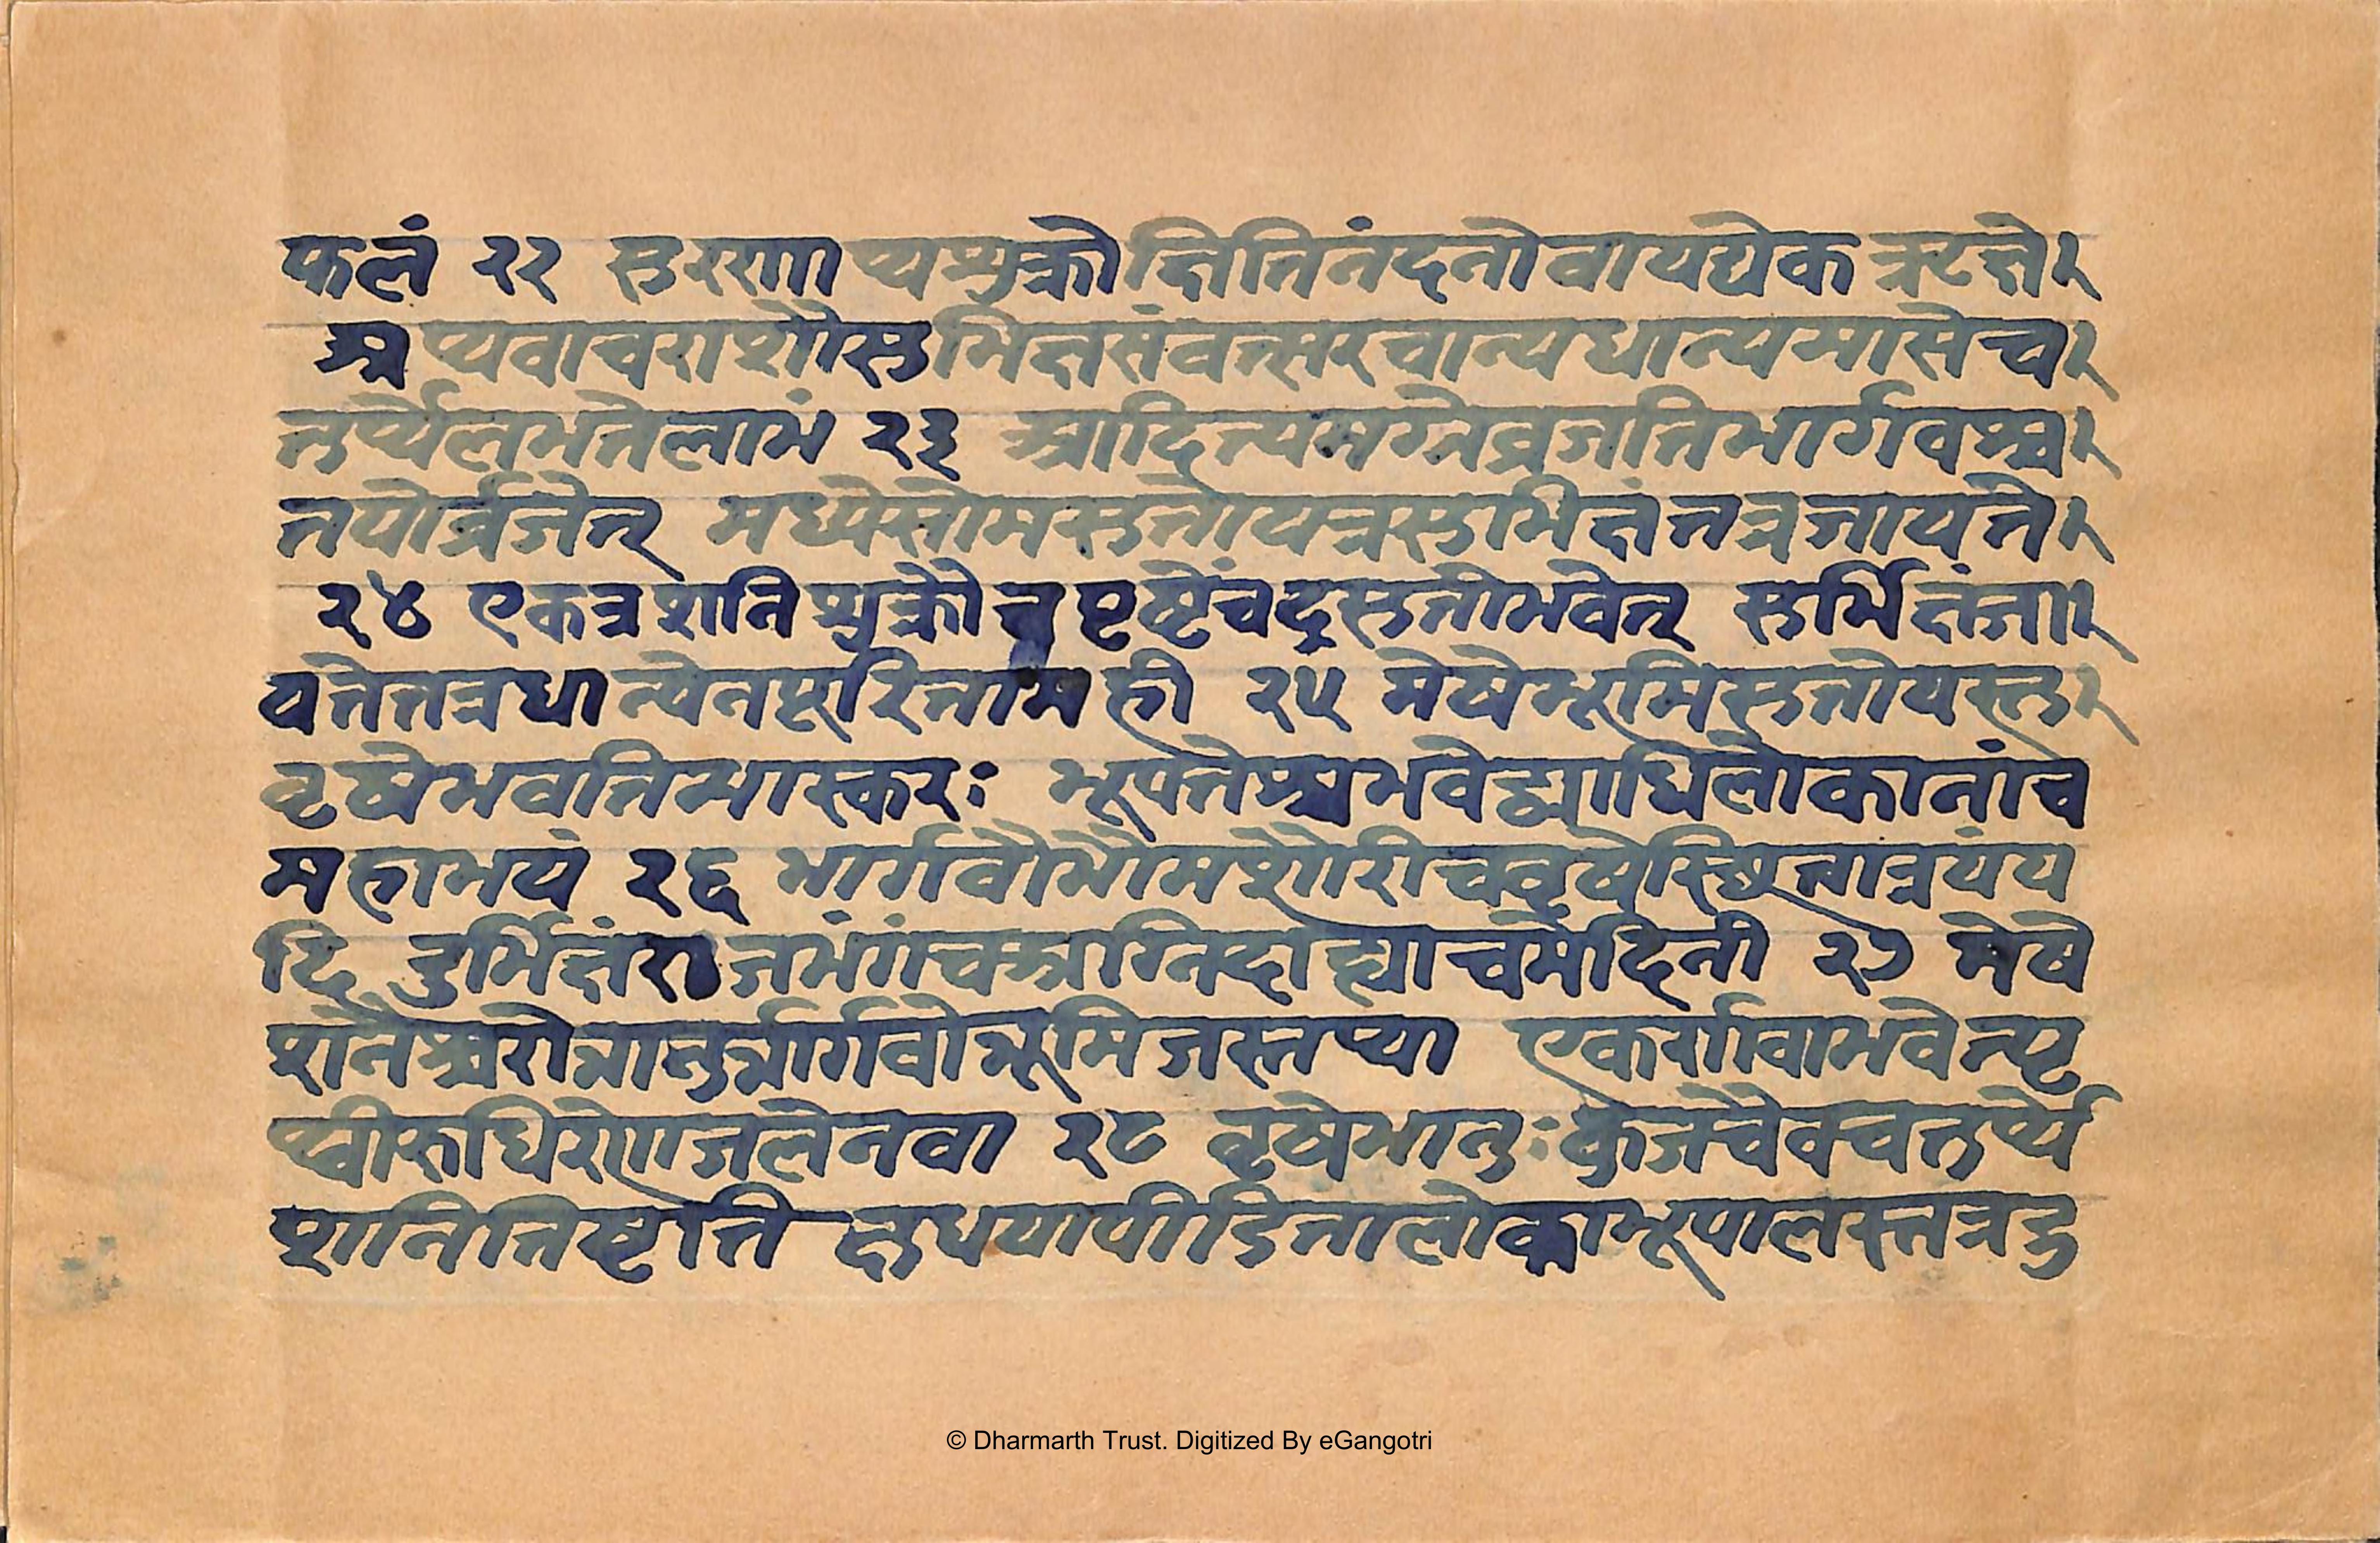 फलं २२ सुरगा प्यशुक्रो क्षितिनंदनो वा यद्येकत्रटक्षे
अप्यवाचराशौ सुभिक्षसंवत्सरचान्यधान्यमासेच
तुर्प्येलभतेलाभं २३ आदित्यमग्नेव्रजतिभार्गवश्च
तयोर्व्रजेत् मध्येसोमसुतोयत्रसुभिक्षंतत्रजायते
२४ एकत्रशनिशुक्रौ पृष्टेचंद्रसुतोभवेत् सुर्भिक्षंजा
यतेतत्रधान्येनपूरितामही २५ मेषेभूमिसुतोयस्तु
वृषेभवतिभास्करः भूपतेश्चभवेद्व्याधिलोकानांच
महाभयं २६ भार्गवोभौमशौरीचवृषेस्थितात्रयंय
दि दुर्भिक्षंराजभंगंचअग्निदाह्याचमेदिनी २७ मेषे
शनैश्चरोभानुर्भार्गवोभूमिजस्तप्या एकर्शावाभवेत्पृ
थ्वीरुधिरेणजलेनवा २८ वृषेभानुःकुजचैवचतुर्प्ये
शनितिष्टति क्षुधयापीडितालोकाभूपालस्तत्रदु
© Dharmarth Trust. Digitized By eGangotri